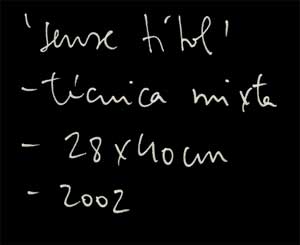 'sense títol'
- tècnica mixta
- 28 x 40 cm
- 2002